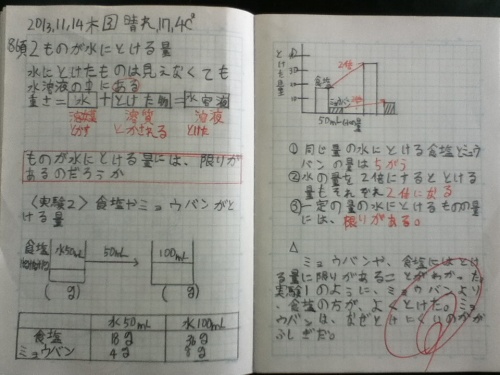 2013,11,14 木 晴れ,17.4℃
8頃2ものが水にとける量
水にとけたものは見えなくても
水溶液の中にある
重さ=水+とけた物=水溶液
溶媒 溶質 溶液
とかす とかされる とけた
ものが水にとける量には、限りが
あるのだろうか
〈実験2〉食塩やミョウバンがと
ける量
食塩 水50mL 50mL 100mL
( g) ( g)
水50mL 水100mL
食塩 18g 36g
ミョウバン 4g 8g
とけた量
食塩 2倍
50mL
①同じ量の水にとける食塩とミョウ
バンの量はちがう
②水の量を2倍にするととける
量もそれぞれ2倍になる
③一定の量の水にとけるものの量
には、限りがある。
△
ミョウバンや、食塩にはとけ
る量に限りがあることがわかった。
実験1のように、ミョウバンより
、食塩の方が、よくとけた。ミョ
ウバンは、なぜとけにくいのかが
ふしぎだ。